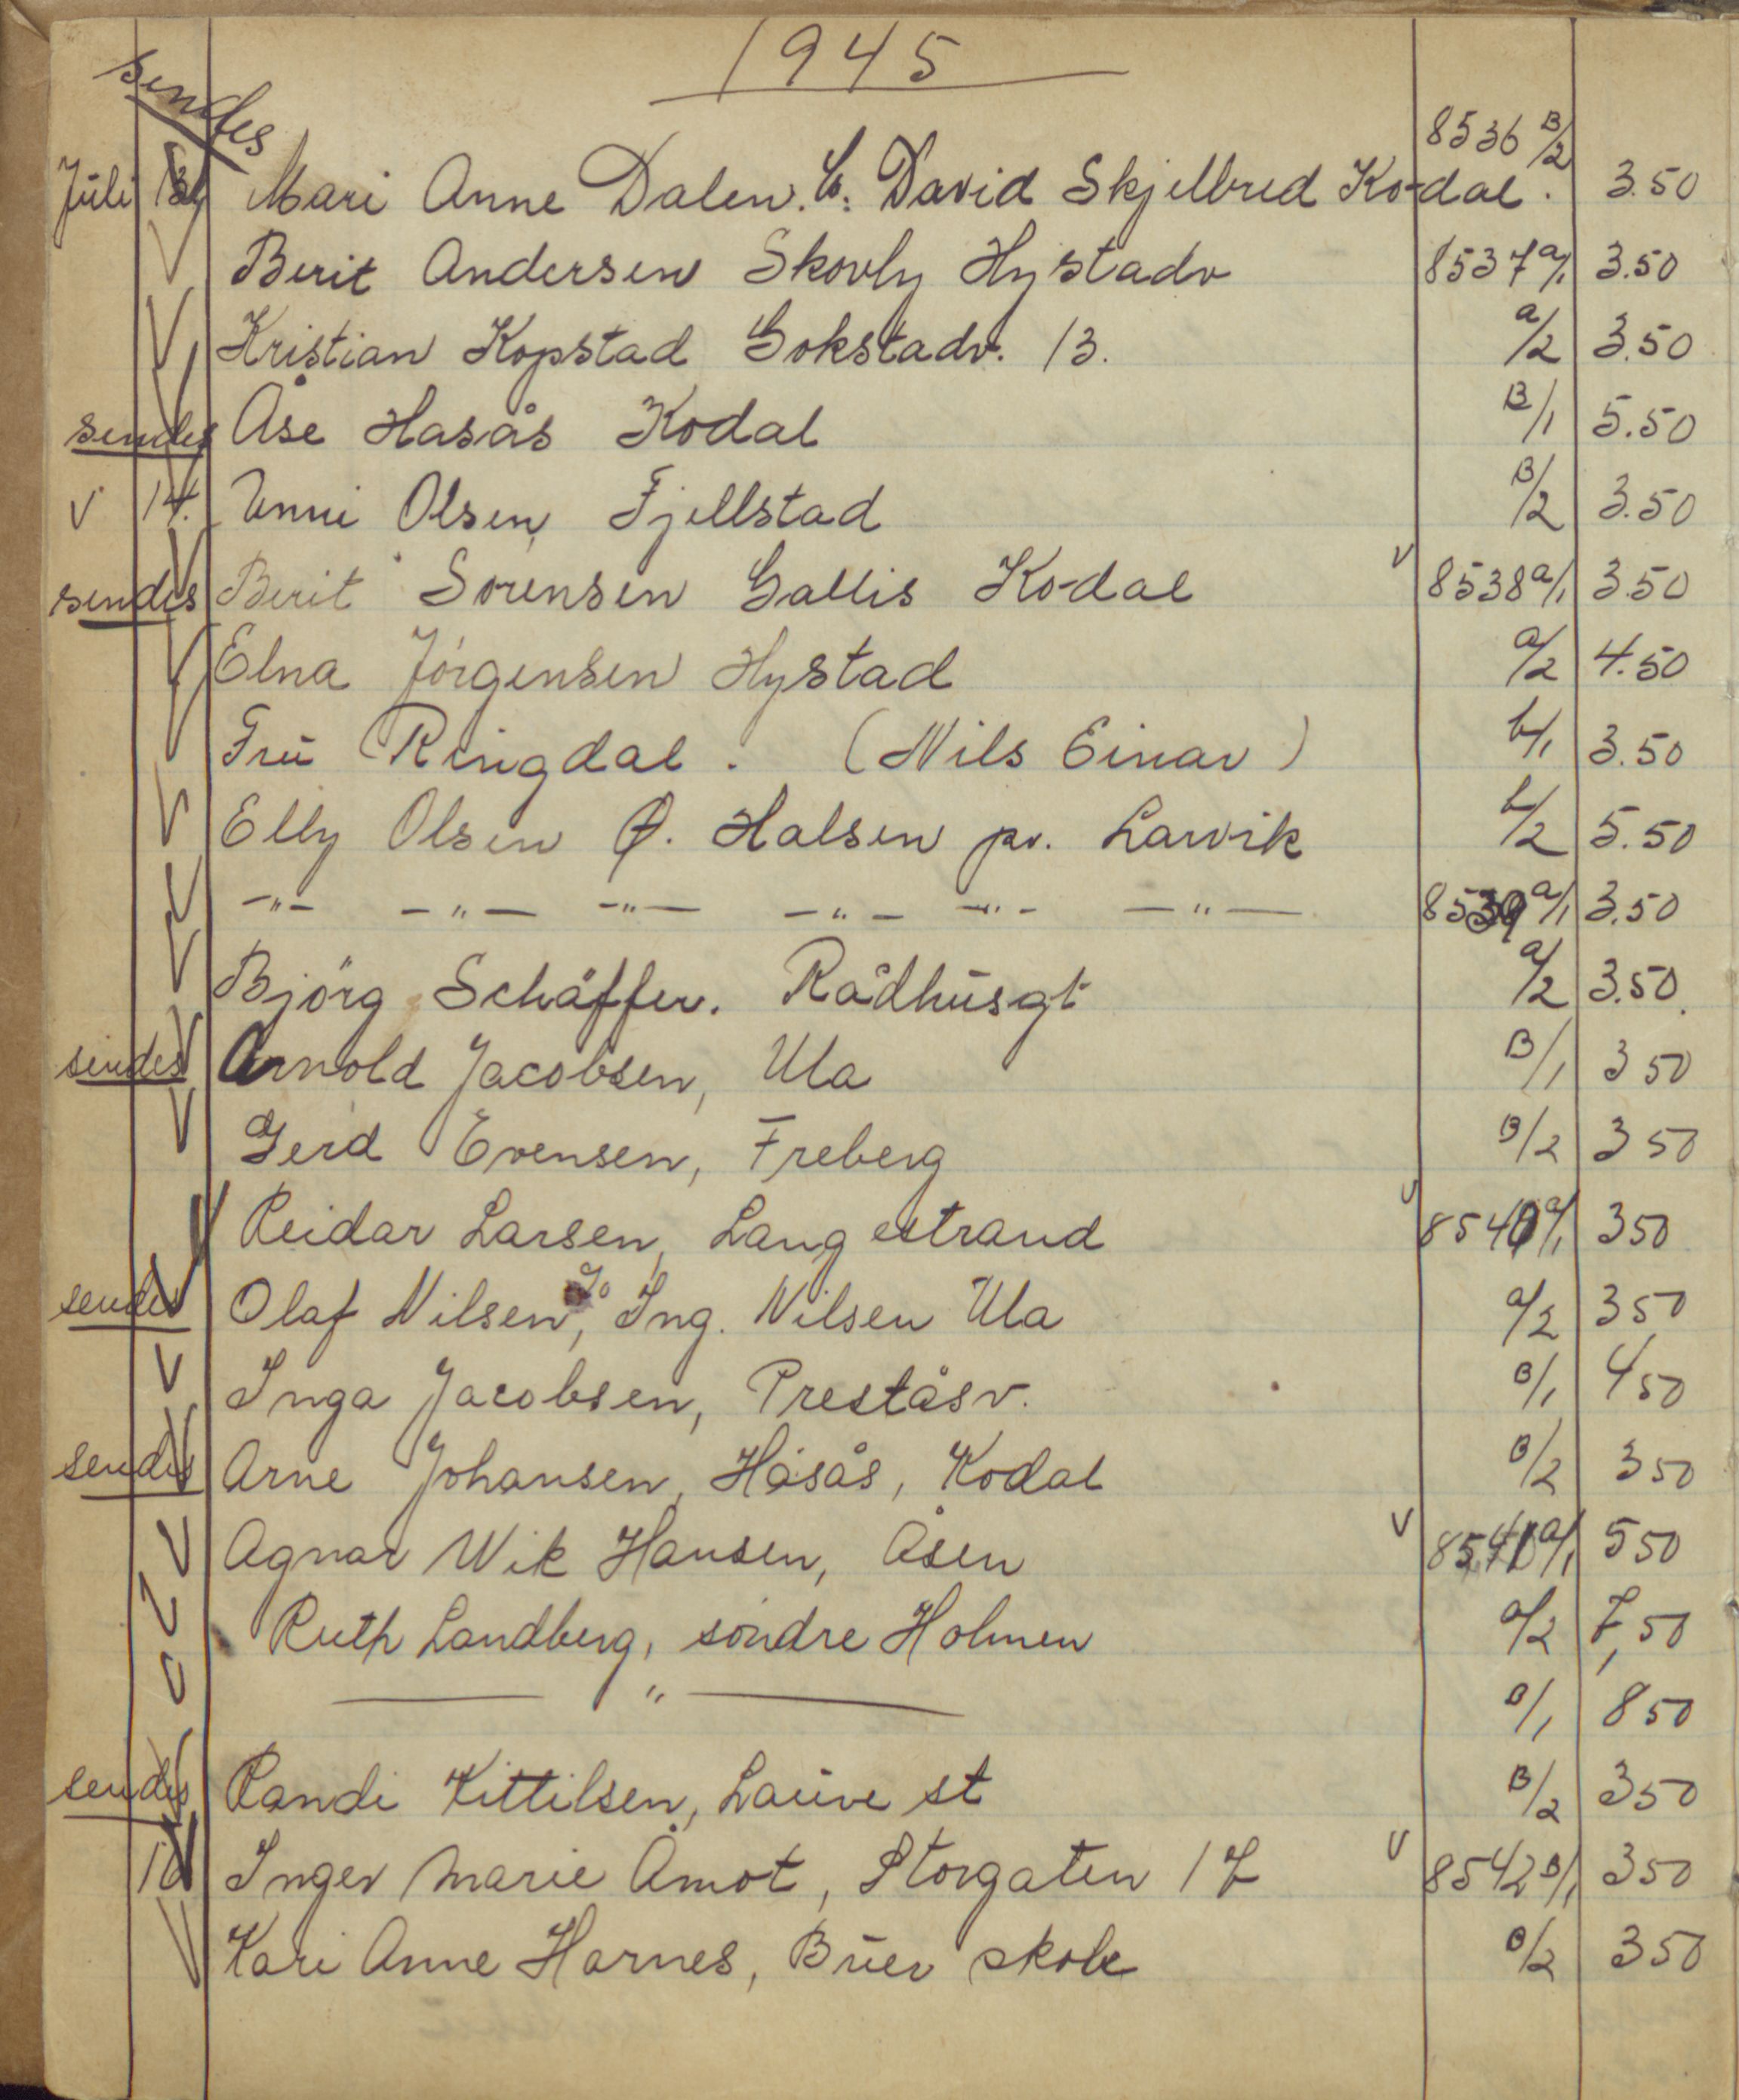 1945
sendes
8536 B/2
Juli 13 Mari Anne Dalen. C: David Skjelbred Kodal. 3.50
Berit Andersen Skovly Hystadv 8537 a/1 3.50
Kristian Kopstad Gokstadv. 13. a/2 3.50
sendes Åse Hasås Kodal B/1 5.50
V 14. Unni Olsen, Fjellstad B/2 3.50
sendes Berit Sörensen Gallis Kodal V 8538 a/1 3.50
Elna Jörgensen Hystad a/2 4.50
Frü Ringdal. (Nils Einar) b/1 3.50
Elly Olsen Ø. Halsen pr. Larvik b/2 5.50
-"- -"- -"- -"- -"- -"- 8539 a/1 3.50
Björg Schäffer. Rådhüsgt a/2 3.50.
sendes Arnold Jacobsen, Ula B/1 3 50
Gerd Evensen, Freberg B/2 3 50
Reidar Larsen, Langestrand V 8540 a/1 3 50
sendes Olaf Nilsen, Ing. Nilsen Ula a/2 3 50
Inga Jacobsen, Preståsv. B/1 4 50
sendes Arne Johansen, Håsås, Kodal B/2 3 50
Agnar Wik Hansen, Åsen V 8541 a/1 5 50
Ruth Landberg, söndre Holmen a/2 7,50
— " — B/1 8 50
sendes Randi Kittilsen, Laüve st B/2 3 50
16 Inger Marie Åmot, Storgaten 17 V 8542 B/1 3 50
Kari Anne Harnes, Büer skole B/2 3 50